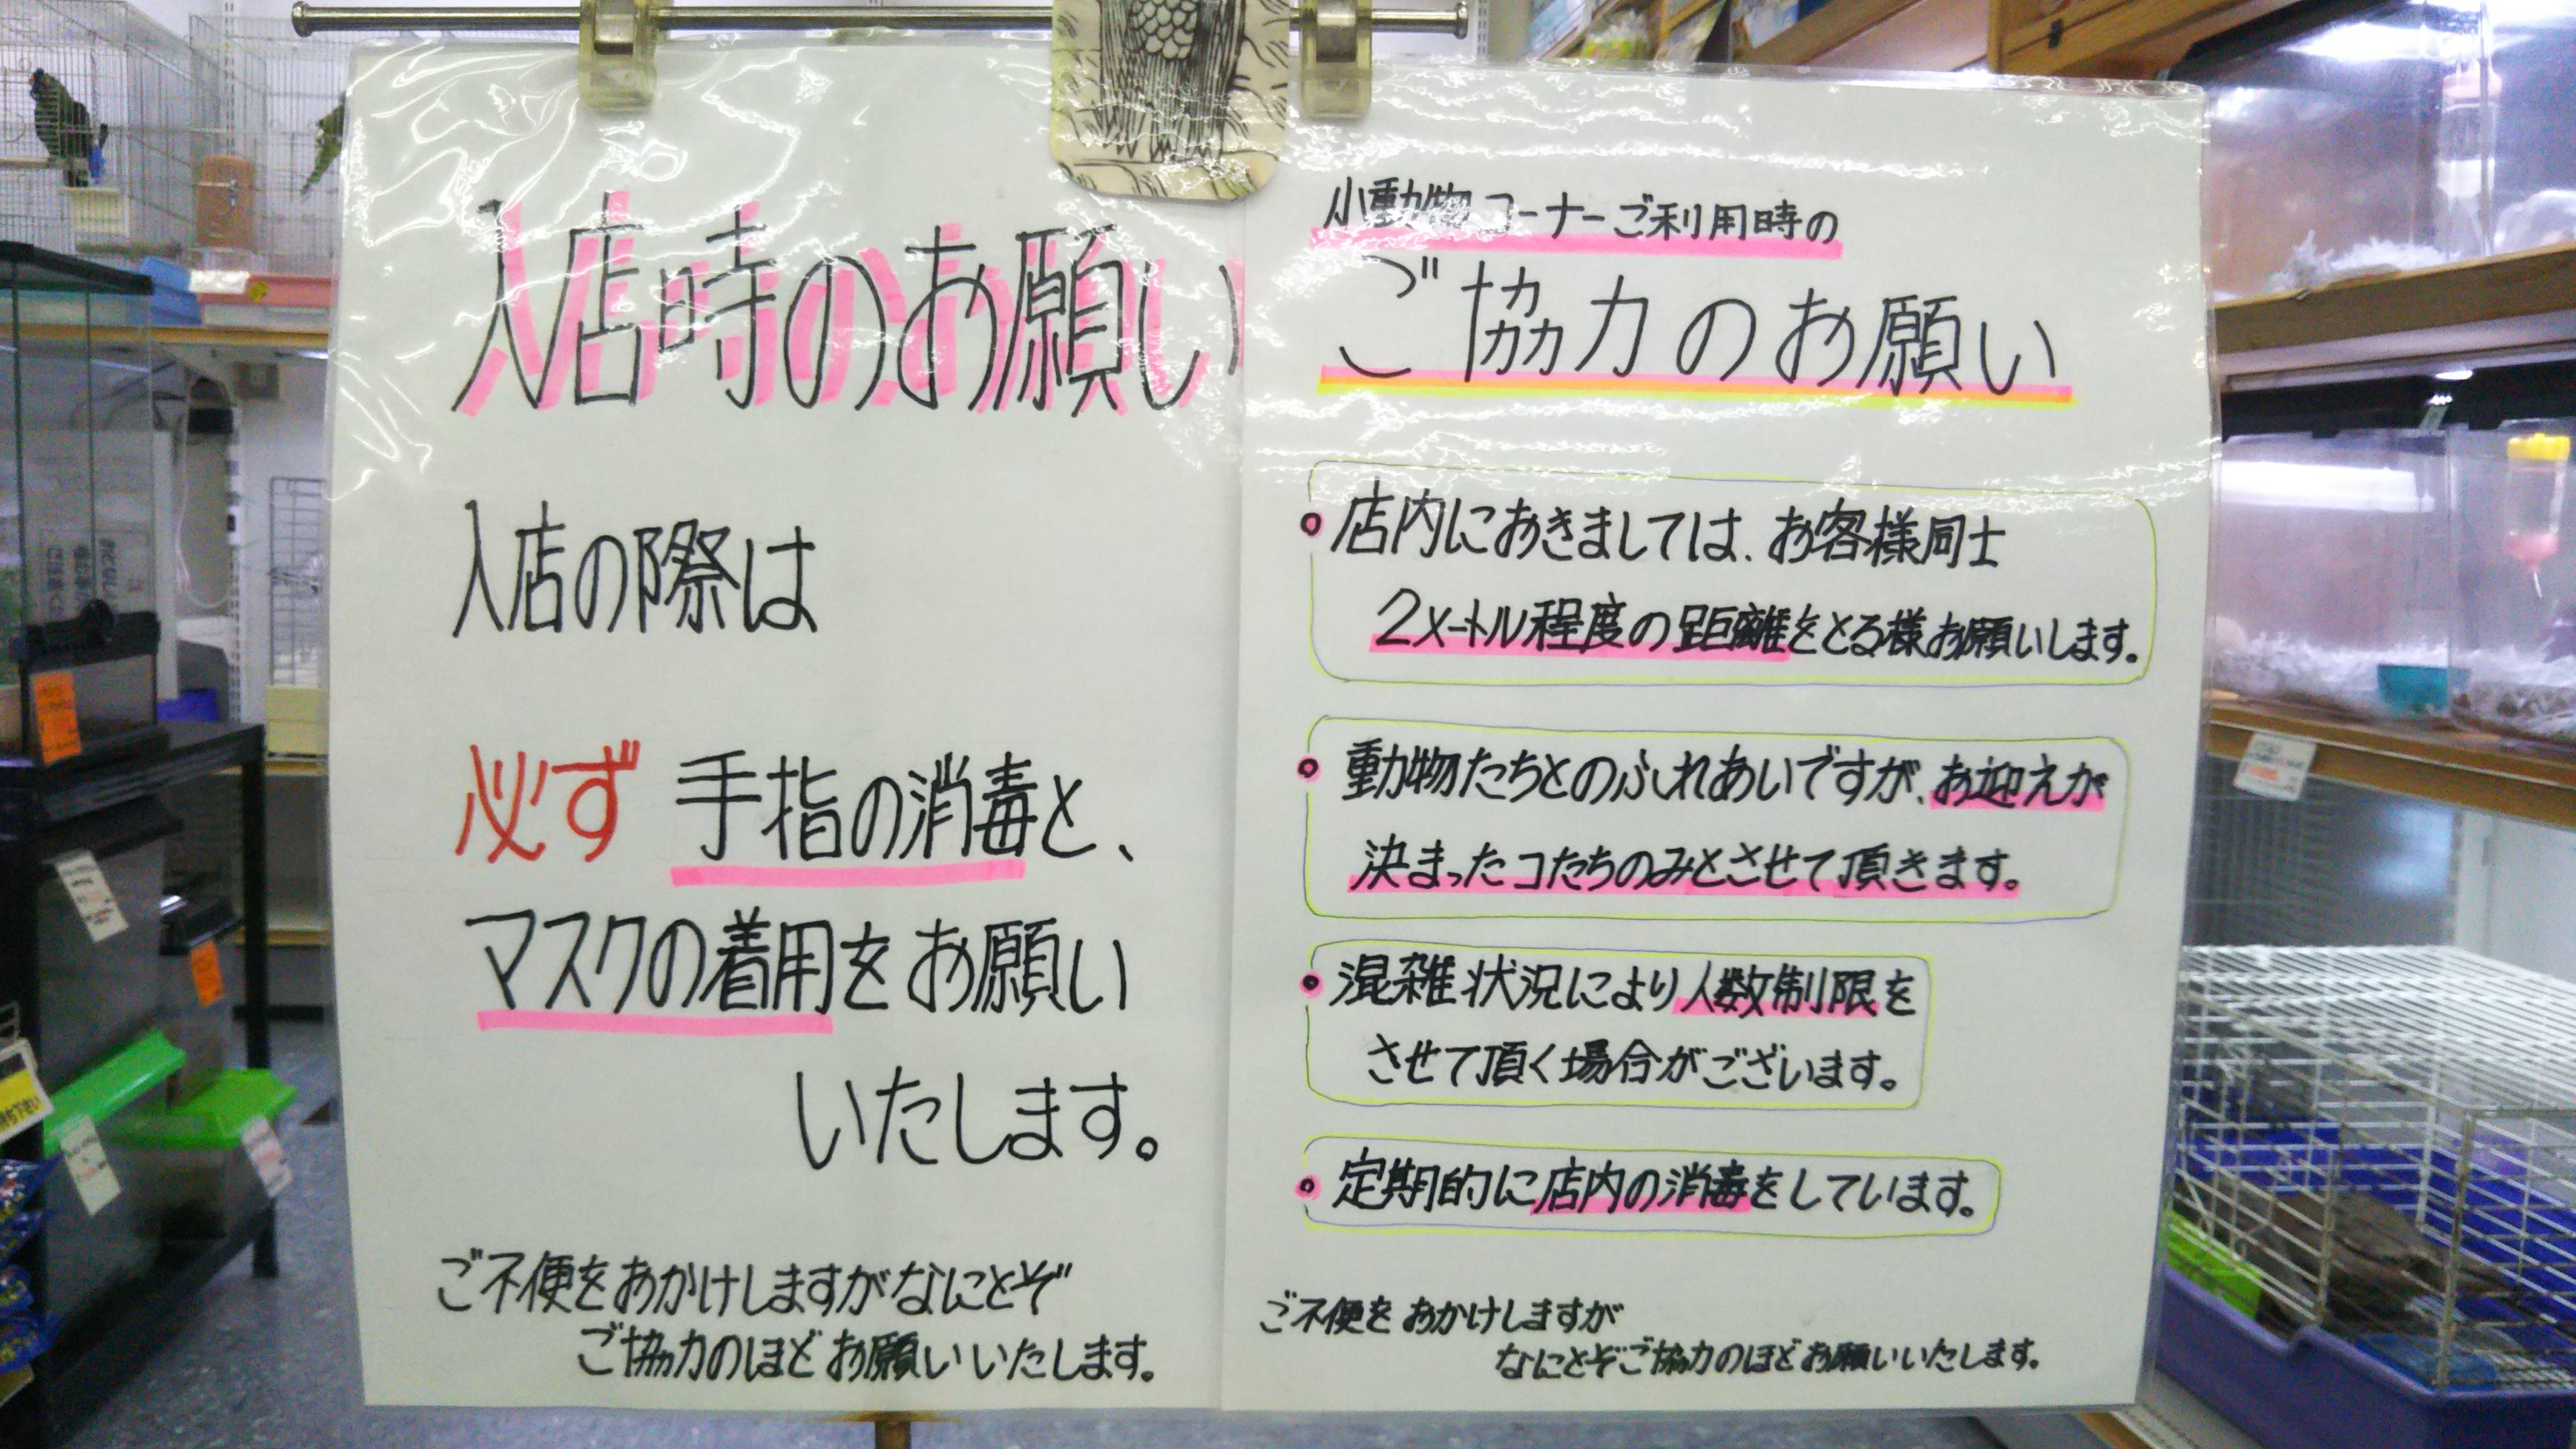 入店時のお願い
入店の際は
必ず 手指の消毒と、
マスクの着用をお願い
いたします。
ご不便をおかけしますがなにとぞ
ご協力のほどお願いいたします。
小動物コーナーご利用時の
ご協力のお願い
店内におきましては、お客様同士
2メートル程度の距離をとる様お願いします。
動物たちとのふれあいですが、お迎えが
決まったコたちのみとさせて頂きます。
混雑状況により人数制限を
させて頂く場合がございます。
定期的に店内の消毒をしています。
ご不便をおかけしますが
なにとぞご協力のほどお願いいたします。